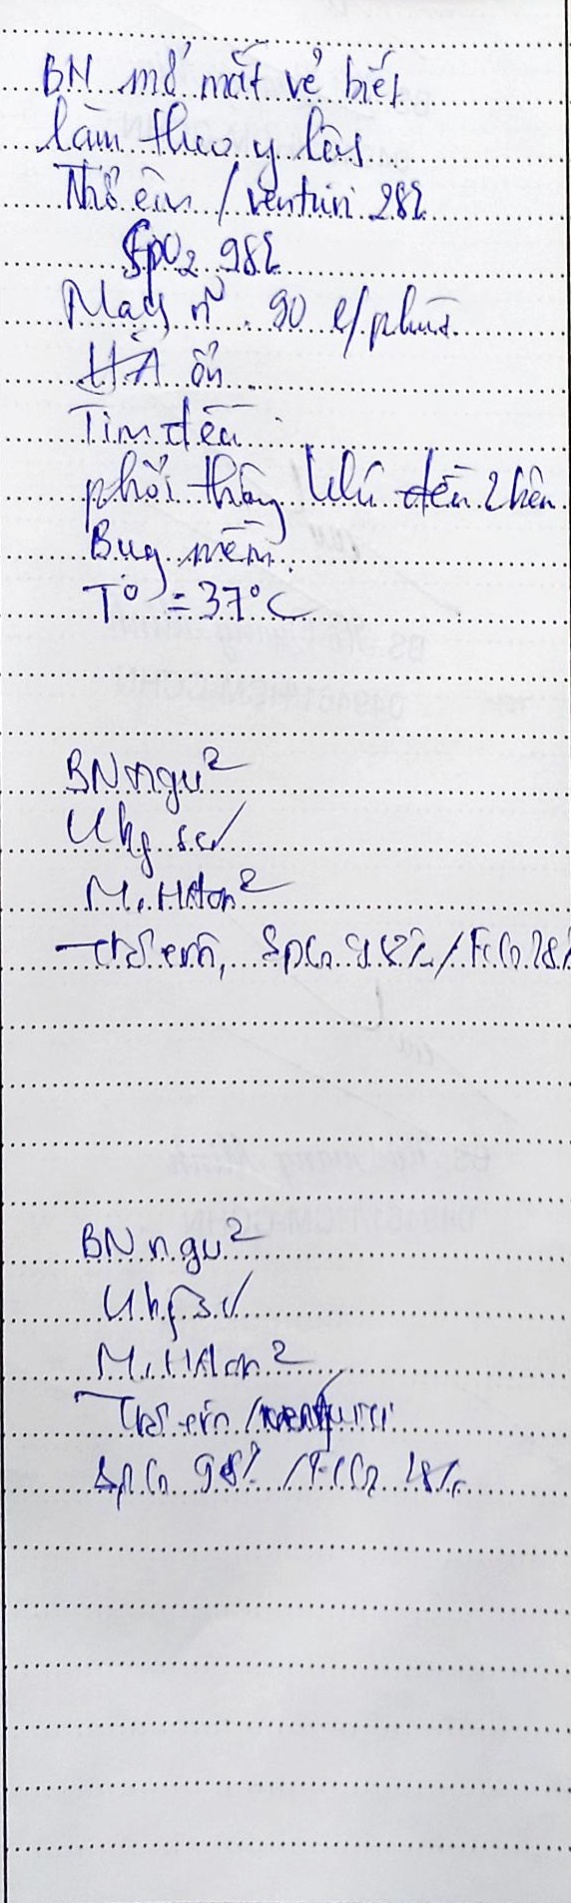 BN mở mắt vẻ biết
làm theo y lệnh
Thở êm / venturi 28%
SpO2 98%
Mạch rõ 90 l/phút
HA ổn
Tim đều
phổi thông khí đều 2 bên
Bụng mềm
T° = 37°C
BN ngủ
Không sốt
M, HA ổn
Thở êm, SpO2 98% / FiO2 28%
BN ngủ
Không sốt
M, HA ổn
Thở êm / venturi
SpO2 98% / FiO2 28%